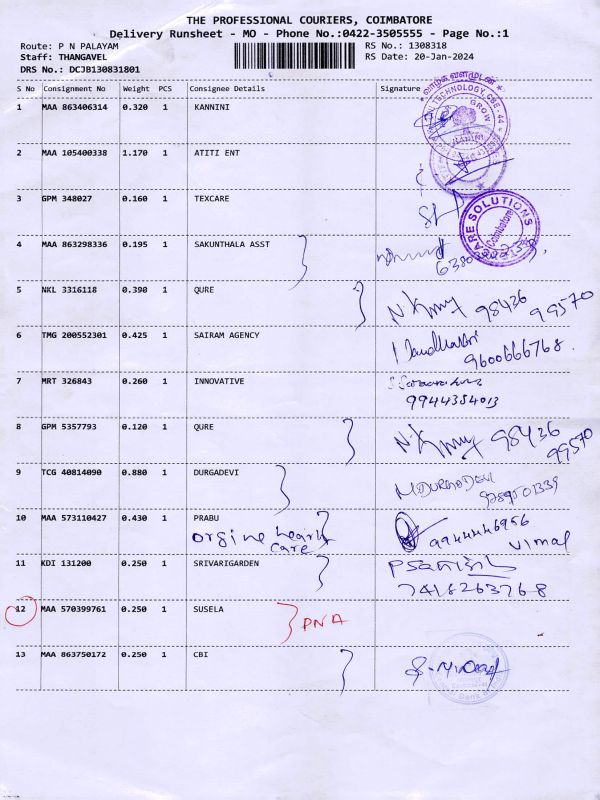 THE PROFESSIONAL COURIERS, COIMBATORE
Delivery Runsheet - MO - Phone No.:0422-3505555 - Page No.:1
Route: P N PALAYAM
Staff: THANGAVEL
DRS No.: DCJB130831801
RS No.: 1308318
RS Date: 20-Jan-2024
S No Consignment No Weight PCS Consignee Details Signature
1 MAA 863406314 0.320 1 KANNINI
2 MAA 105400338 1.170 1 ATITI ENT
3 GPM 348027 0.160 1 TEXCARE
CARE SOLUTIONS
Coimbatore
4 MAA 863298336 0.195 1 SAKUNTHALA ASST
5 NKL 3316118 0.390 1 QURE 98436
99570
6 TMG 200552301 0.425 1 SAIRAM AGENCY
9600666768
7 MRT 326843 0.260 1 INNOVATIVE
9944384013
8 GPM 5357793 0.120 1 QURE 98436
99570
9 TCG 40814090 0.880 1 DURGADEVI M.DURGADEVI
10 MAA 573110427 0.430 1 PRABU 9944446956
orgine heart vimal
care
11 KDI 131200 0.250 1 SRIVARIGARDEN
7418263768
12 MAA 570399761 0.250 1 SUSELA PNA
13 MAA 863750172 0.250 1 CBI